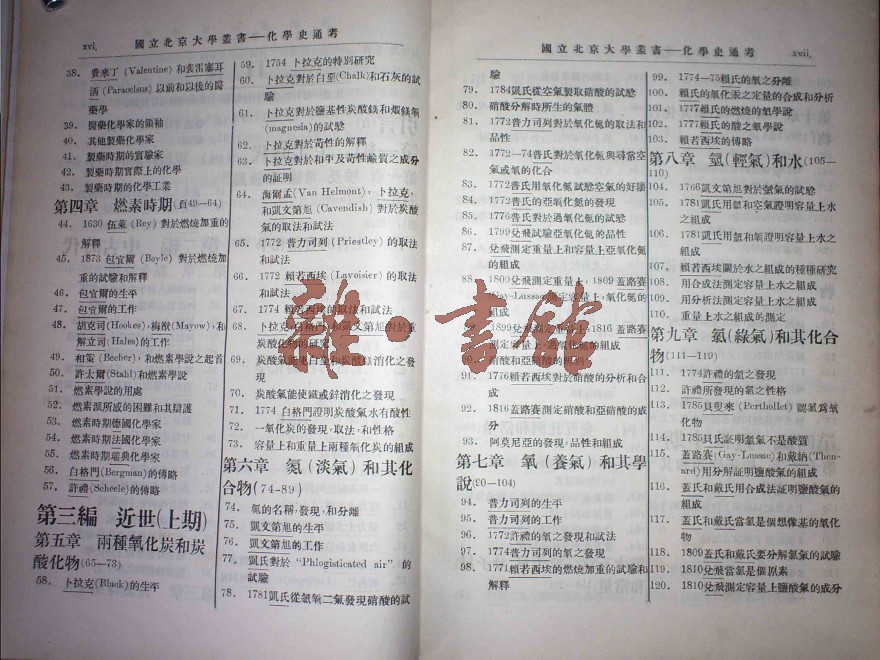 xvi. 國立北京大學叢書——化學史通考
38. 費來丁 (Valentine) 和裴雷塞耳
洒 (Paracelsus) 以前和以後的醫
藥學
39. 醫藥化學家的領袖
40. 其他製藥化學家
41. 製藥時期的實驗家
42. 製藥時期實際上的化學
43. 製藥時期的化學工業
第四章 燃素時期(頁49—64)
44. 1630 伍萊 (Rey) 對於燃燒加重的
解釋
45. 1873 包宜爾 (Boyle) 對於燃燒加
重的試驗和解釋
46. 包宜爾的生平
47. 包宜爾的工作
48. 胡克司(Hookes), 梅猷(Mayow), 和
解立司(Hales)的工作
49. 相策(Becher), 和燃素學說之起首
50. 許太爾(Stahl)和燃素學說
51. 燃素學說的用處
52. 燃素派所感的困難和其辯護
53. 燃素時期德國化學家
54. 燃素時期法國化學家
55. 燃素時期瑞典化學家
56. 白格門(Bergman)的傳略
57. 許禮(Scheele)的傳略
第三編 近世(上期)
第五章 兩種氧化炭和炭
酸化物(65—73)
58. 卜拉克(Black)的生平
59. 1754 卜拉克的特別研究
60. 卜拉克對於白堊(Chalk)和石灰的試
驗
61. 卜拉克對於鹽基性炭酸鎂和煅鎂
(magnesia)的試驗
62. 卜拉克對於苛性的解釋
63. 卜拉克對於和平及苛性鹼質之成分
的証明
64. 海爾孟(Van Helmont), 卜拉克,
和凱文第旭 (Cavendish) 對於炭酸
氣的取法和試法
65. 1772 普力司列 (Priestley) 的取法
和試法
66. 1772 賴若西埃 (Lavoisier) 的取法
和試法
67. 1774 賴若西埃的取法和試法
68. 卜拉克,白格門,和凱文第旭對於重
炭酸化物的研究
69. 炭酸氣能使白堊和炭酸鎂消化之發
現
70. 炭酸氣能使鐵或鋅消化之發現
71. 1774 白格門證明炭酸氣水有酸性
72. 一氧化炭的發現,取法,和性格
73. 容量上和重量上兩種氧化炭的組成
第六章 氮(淡氣)和其化
合物(74-89)
74. 氮的名稱,發現,和分離
75. 凱文第旭的生平
76. 凱文第旭的工作
77. 凱氏對於 “Phlogisticated air” 的
試驗
78. 1781凱氏從氫氧二氣發現硝酸的試
國立北京大學叢書——化學史通考 xvii.
驗
79. 1784凱氏從空氣製取硝酸的試驗
80. 硝酸分解時所生的氣體
81. 1772普力司列對於氧化氮的取法和
品性
82. 1772—74普氏對於氧化氮與尋常空
氣或氧的化合
83. 1772普氏用氧化氮試驗空氣的好壞
84. 1772普氏的亞氧化氮的發現
85. 1776普氏對於過氧化氮的試驗
86. 1799兌飛試驗亞氧化氮的品性
87. 兌飛測定重量上和容量上亞氧化氮
的組成
88. 1800兌飛測定重量上, 1809 蓋路賽
(Gay-Lussac)測定容量上,氧化氮的
組成
89. 1899兌飛測定重量上, 1816 蓋路賽
測定容量上,過氧化氮的組成
90. 硝酸和亞硝酸的辨別
91. 1776賴若西埃對於硝酸的分析和合
成
92. 1816蓋路賽測定硝酸和亞硝酸的成
分
93. 阿莫尼亞的發現,品性和組成
第七章 氧(養氣)和其學
說(90—104)
94. 普力司列的生平
95. 普力司列的工作
96. 1772許禮的氧之發現和試法
97. 1774普力司列的氧之發現
98. 1771賴若西埃的燃燒加重的試驗和
解釋
99. 1774—75賴氏的氧之分離
100. 賴氏的氧化汞之定量的合成和分析
101. 1777賴氏的燃燒的氧學說
102. 1777賴氏的酸之氧學說
103. 賴若西埃的傳略
第八章 氫(輕氣)和水(105—
110)
104. 1766凱文第旭對於氫氣的試驗
105. 1781凱氏用氫和空氣證明容量上水
之組成
106. 1781凱氏用氫和氧證明容量上水之
組成
107. 賴若西埃關於水之組成的種種研究
108. 用合成法測定重量上水之組成
109. 用分析法測定重量上水之組成
110. 重量上水之組成的測定
第九章 氯(綠氣)和其化合
物(111—119)
111. 1774許禮的氯之發現
112. 許禮所發現的氯之性格
113. 1785貝叟來 (Berthollet) 認氯爲氧
化物
114. 1785貝氏証明氫氯不是酸質
115. 蓋路賽(Gay-Lussac)和戴納(Then-
ard)用分解証明鹽酸氣的組成
116. 蓋氏和戴氏用合成法証明鹽酸氣的
組成
117. 蓋氏和戴氏當氯是個想像基的氧化
物
118. 1809蓋氏和戴氏要分解氯氣的試驗
119. 1810兌飛當氯是個原素
120. 1810兌飛測定容量上鹽酸氣的成分